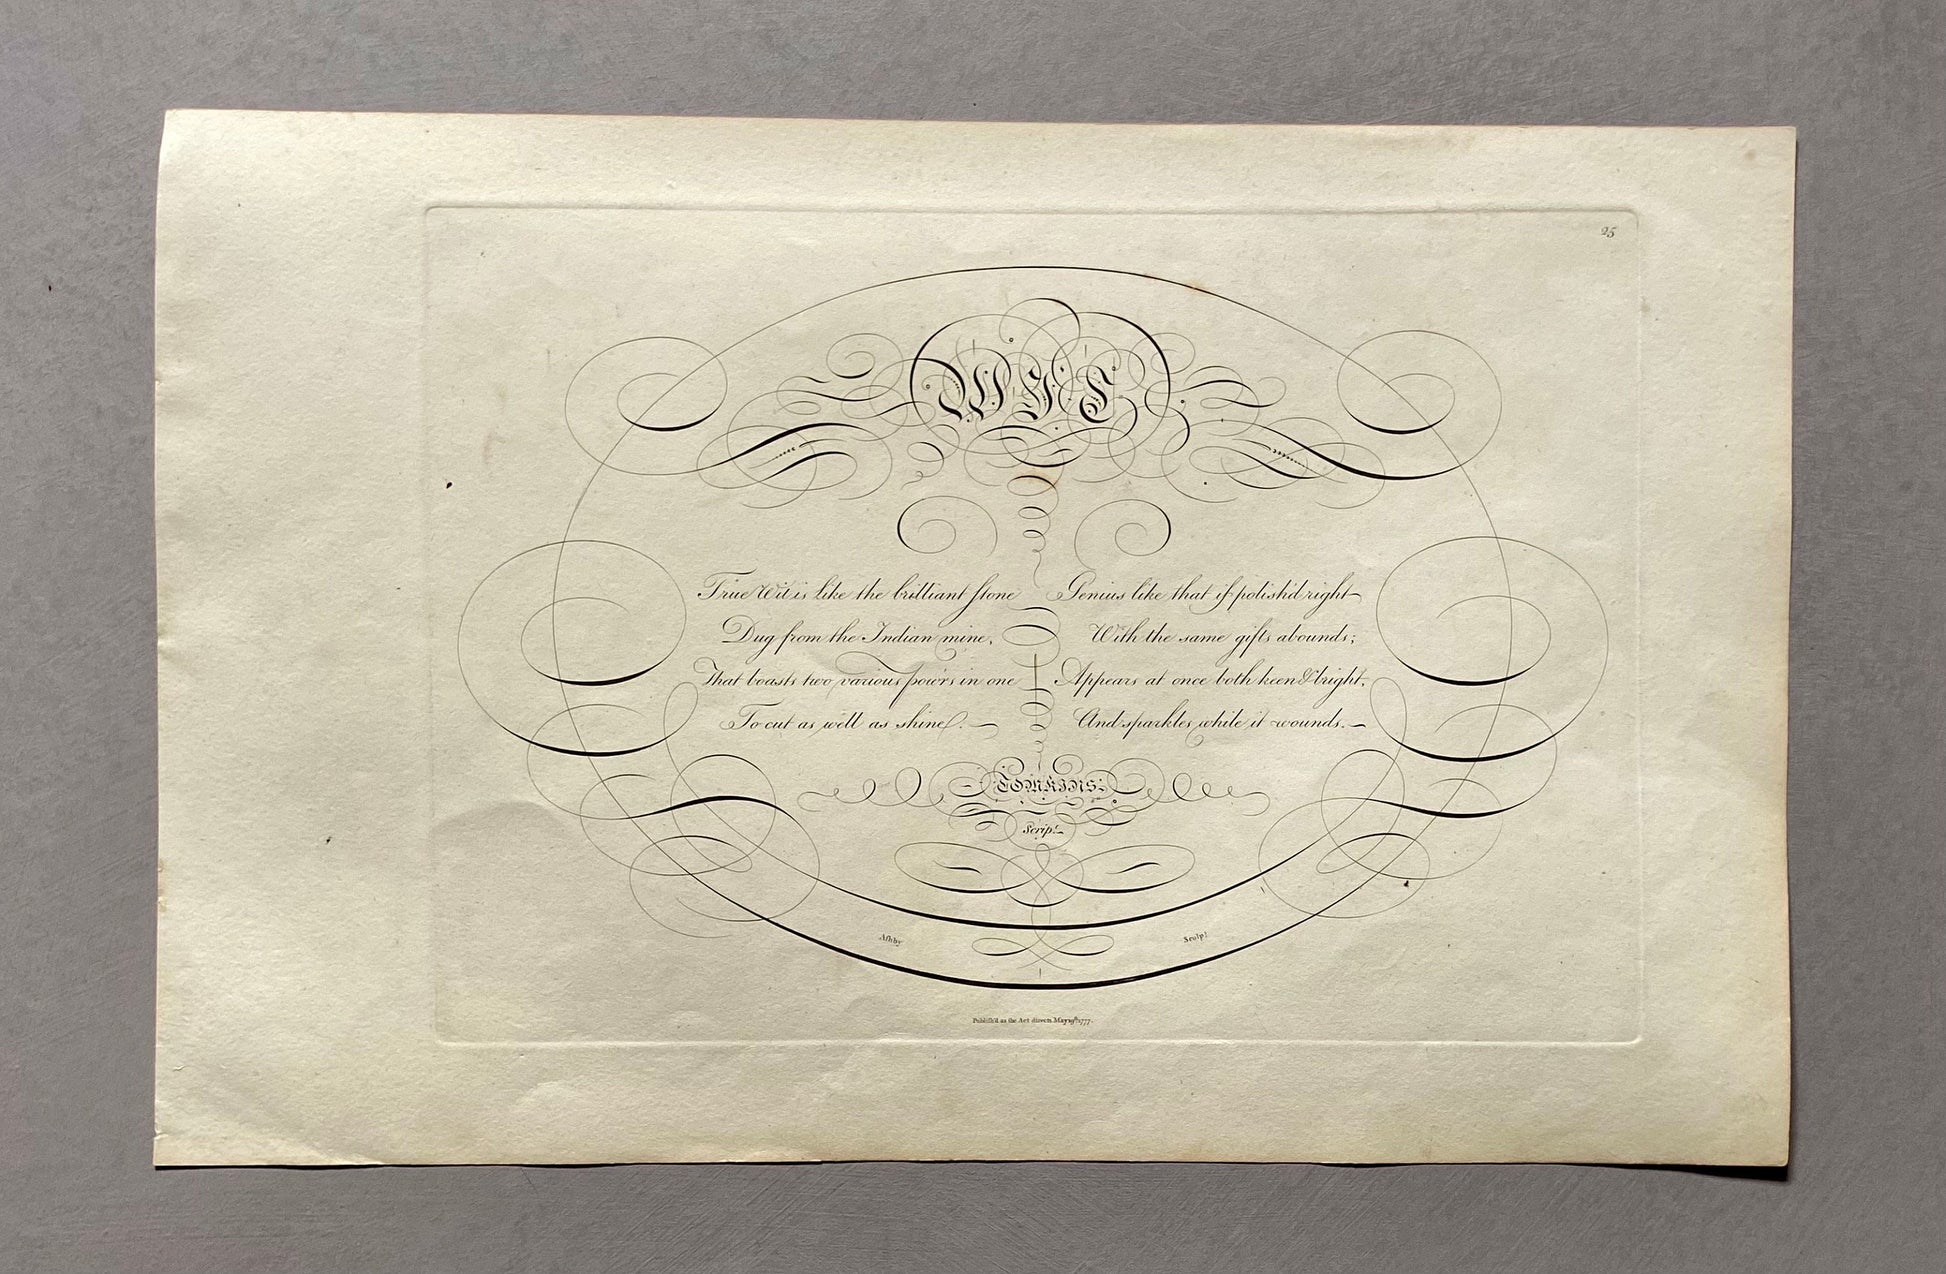 25
WIT
True Wit is like the brilliant stone
Dug from the Indian mine,
That boasts two various pow'rs in one
To cut as well as shine.
Genius like that if polish'd right
With the same gifts abounds;
Appears at once both keen & bright,
And sparkles while it wounds.
TOMKINS.
Scrip.t
Ashby Sculp.t
Publish'd as the Act directs May 19th 1777.